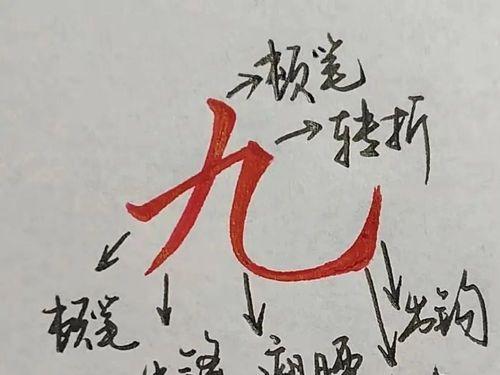 顿笔
转折
九
顿笔
出钩
出锋